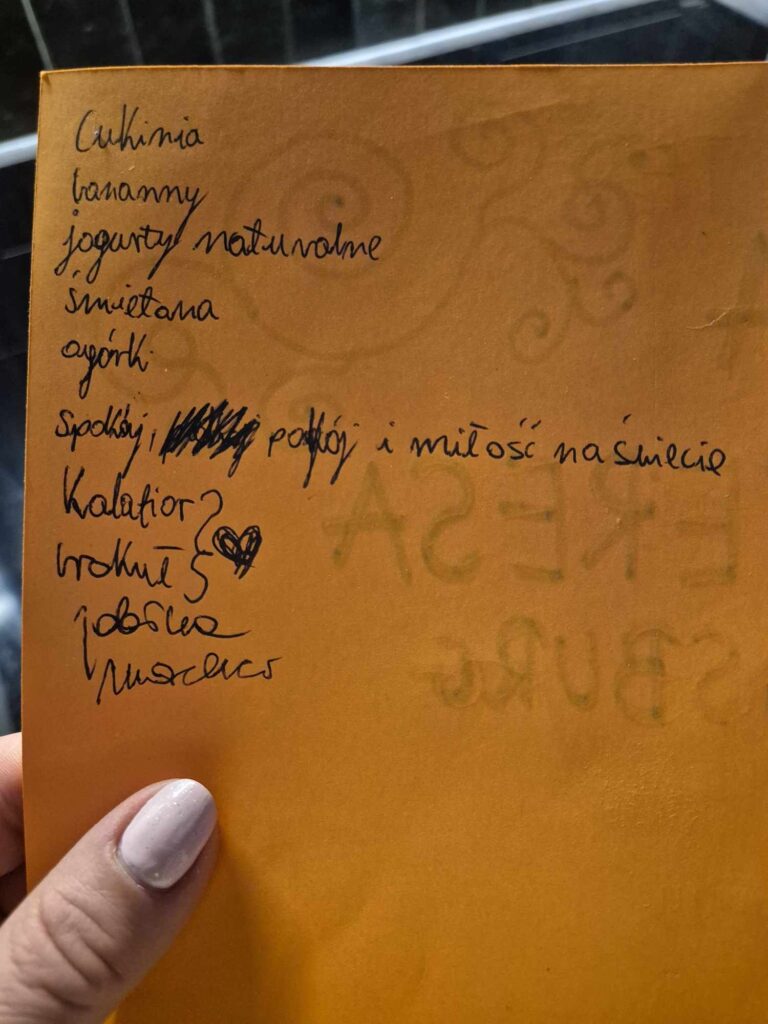 Cukinia
bananny
jogurty naturalne
śmietana
ogórki
Spokój, pokój i miłość na świecie
Kalafior
brokuł
jabłka